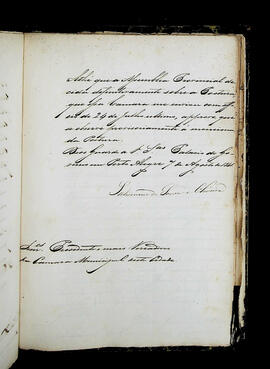 Até que a Assemblea Provincial de
cida definitivamente sobre a Postura
que essa Camara me enviou em offi
cio de 24 de Julho ultimo, approvo que
se observe provisoriamente a mesma
Postura.
Deos Guarde a V. Sas Palacio do Go
verno em Porto Alegre 7 de Agosto de 184
Snres Presidente e mais Vereadores
da Camara Municipal desta Cidade